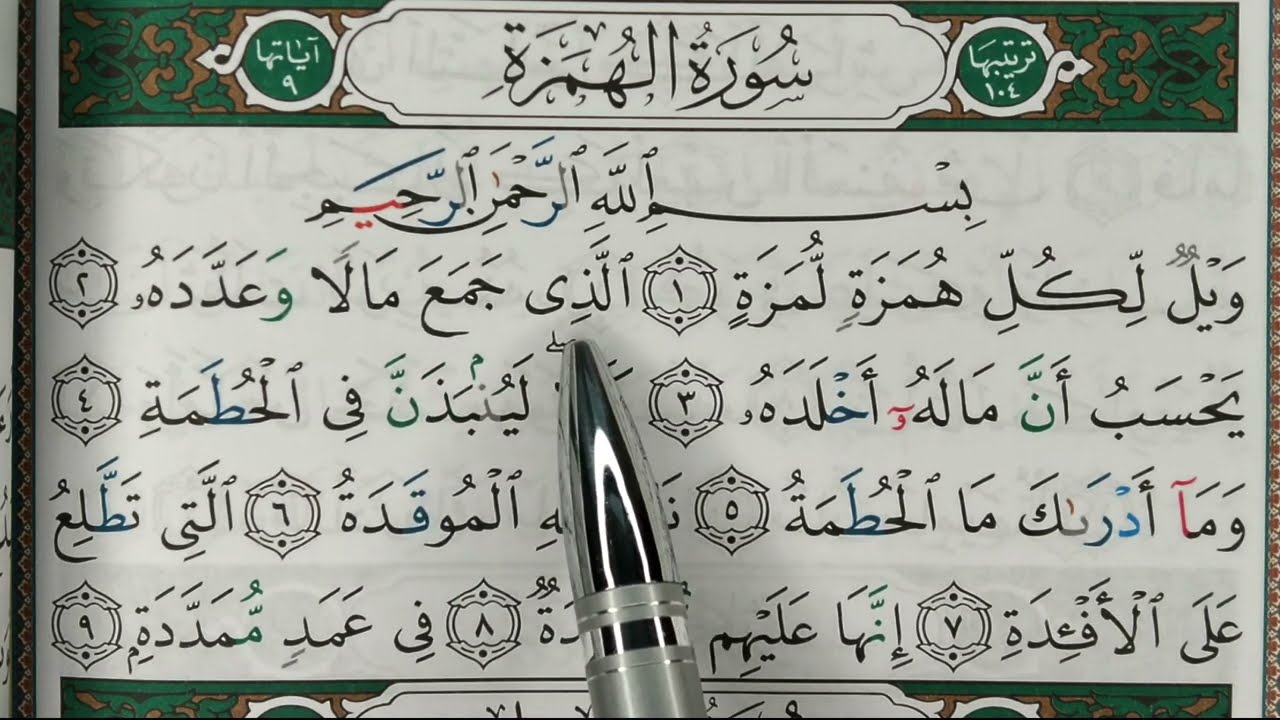 تَرتيبُها ١٠٤ سُورَةُ الهُمَزَةِ آياتُها ٩
بِسْمِ ٱللَّهِ ٱلرَّحْمَٰنِ ٱلرَّحِيمِ
وَيْلٌ لِّكُلِّ هُمَزَةٍ لُّمَزَةٍ ١ ٱلَّذِى جَمَعَ مَالًا وَعَدَّدَهُۥ ٢
يَحْسَبُ أَنَّ مَالَهُۥٓ أَخْلَدَهُۥ ٣ لَيُنۢبَذَنَّ فِى ٱلْحُطَمَةِ ٤
وَمَآ أَدْرَىٰكَ مَا ٱلْحُطَمَةُ ٥ ٱلْمُوقَدَةُ ٦ ٱلَّتِى تَطَّلِعُ
عَلَى ٱلْأَفْـِٔدَةِ ٧ إِنَّهَا عَلَيْهِم ٨ فِى عَمَدٍ مُّمَدَّدَةٍۭ ٩